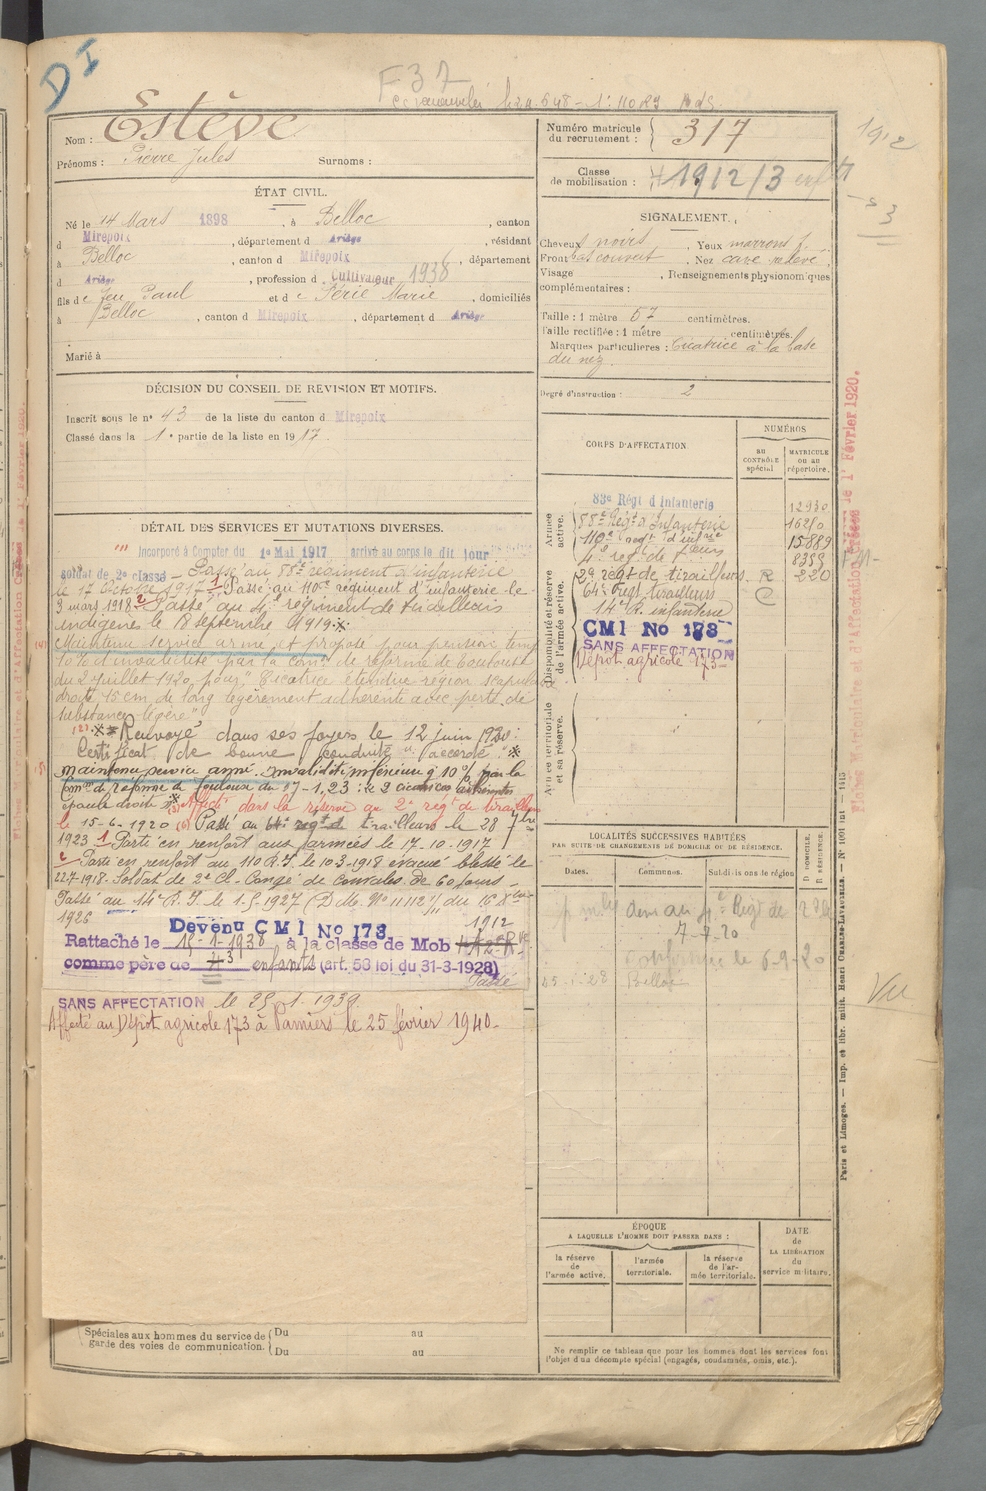 DI
F37
Nom : Estève
Prénoms : Pierre Jules Surnoms :
ÉTAT CIVIL.
Né le 14 Mars 1898, à Belloc, canton
d Mirepoix, département d Ariège, résidant
à Belloc, canton d Mirepoix, département
d Ariège, profession d Cultivateur 1938
fils de feu Paul et de Périé Marie, domiciliés
à Belloc, canton d Mirepoix, département d Ariège
Marié à
DÉCISION DU CONSEIL DE REVISION ET MOTIFS.
Inscrit sous le n° 43 de la liste du canton d Mirepoix
Classé dans la 1e partie de la liste en 1917.
DÉTAIL DES SERVICES ET MUTATIONS DIVERSES.
Incorporé à Compter du 1er Mai 1917 arrivé au corps le dit jour
soldat de 2e classe – Passé au 88e régiment d'infanterie
le 17 Octobre 1917 1 Passé au 110e régiment d'infanterie le
3 mars 1918 2 Passé au 4e régiment de tirailleurs
indigènes le 18 septembre 1919 ※
(4) Maintenu service armé et proposé pour pension temp
10 % d'invalidité par la comon de réforme de Toulouse
du 2 juillet 1920 pour "Cicatrice étendue région scapulaire
droite, 15 cm de long légèrement adhérente avec perte de
substance légère"
(2) ※ Renvoyé dans ses foyers le 12 juin 1920.
Certificat de bonne conduite "accordé" ※
(5) maintenu service armé. invalidité inférieure à 10 % par la
Comon de réforme de Toulouse du 17-1-23 : 2 cicatrices adhérentes
épaule droite ※ (3) Affecté dans la réserve au 2e regt de tirailleurs
le 15-6-1920 (6) Passé au 64e regt de tirailleurs le 28 7bre
1923 1 Parti en renfort aux armées le 17-10-1917
2 Parti en renfort au 110 R.I. le 10-3-1918 évacué blessé le
22-7-1918. Soldat de 2e Cl. Congé de Convales. de 60 jours –
Passé au 14e R.I. le 1-5-1927 (D.M. N° 11112 1/11 du 16 Xbre
1926
Devenu CMI No 173
1912
Rattaché le 15-1-1938 à la classe de Mob
comme père de 3 enfants (art. 58 loi du 31-3-1928)
Passé
SANS AFFECTATION le 25-1-1939
Affecté au Dépôt agricole 173 à Pamiers le 25 février 1940-
Spéciales aux hommes du service de garde des voies de communication. { Du au
Du au
Numéro matricule du recrutement : 317
Classe de mobilisation : 1912/3 enf
1912
- 3
SIGNALEMENT.
Cheveux noirs, Yeux marrons f.
Front bas couvert, Nez cave relevé,
Visage , Renseignements physionomiques
complémentaires :
Taille : 1 mètre 57 centimètres.
Taille rectifiée : 1 mètre centimètres.
Marques particulières : Cicatrice à la base
du nez
Degré d'instruction : 2
CORPS D'AFFECTATION
NUMÉROS
AU CONTRÔLE spécial
MATRICULE OU AU répertoire.
Armée active.
83e Régt d'Infanterie 12930
88e Régt d'Infanterie 16210
110e regt d'infie 15889
4e regt de tieurs 8359
Disponibilité et réserve de l'armée active.
2e régt de tirailleurs R 220
64e Regt tirailleurs C
14e R. infanterie
CMI No 173
SANS AFFECTATION
Dépôt agricole 173
Armée territoriale et sa réserve.
LOCALITÉS SUCCESSIVES HABITÉES
PAR SUITE DE CHANGEMENTS DE DOMICILE OU DE RÉSIDENCE.
Dates. Communes. Subdivisions de région
D DOMICILE, R RÉSIDENCE.
7-7-20
le 6-9-20
15-1-28 Belloc
Vu
ÉPOQUE
A LAQUELLE L'HOMME DOIT PASSER DANS :
la réserve de l'armée active.
l'armée territoriale.
la réserve de l'armée territoriale.
DATE de LA LIBÉRATION du service militaire.
Ne remplir ce tableau que pour les hommes dont les services font
l'objet d'un décompte spécial (engagés, condamnés, omis, etc.).
Paris et Limoges. — Imp. et libr. milit. Henri CHARLES-LAVAUZELLE.